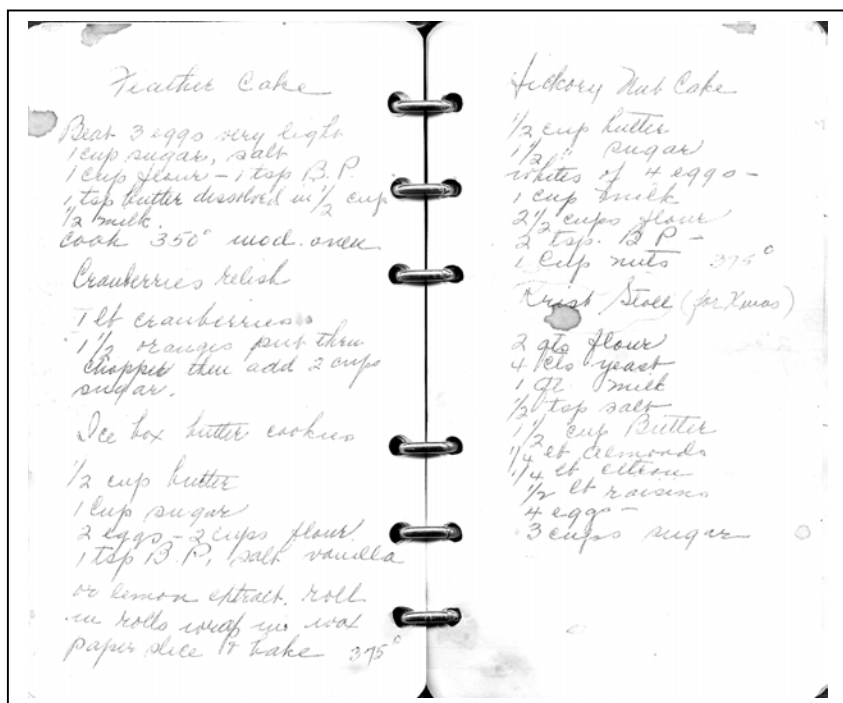 Feather Cake
Beat 3 eggs very light
1 cup sugar, salt
1 cup flour - 1 tsp B.P.
1 tsp butter dissolved in 1/2 cup
1/2 milk.
Cook 350° mod. oven
Cranberries relish
1 lb cranberries
1 1/2 oranges put thru
chopper then add 2 cups
sugar.
Ice box butter cookies
1/2 cup butter
1 Cup sugar
2 eggs - 2 cups flour
1 tsp B.P. salt vanilla
or lemon extract. roll
in rolls wrap in wax
paper slice & bake 375°
Hickory Nut Cake
1/2 cup butter
1 1/2 " sugar
whites of 4 eggs -
1 cup milk
2 1/2 cups flour
2 tsp. B P -
1 Cup nuts 375°
Krist Stoll (for Xmas)
2 qts flour
4 yeast
1 qt milk
1/2 tsp salt
1 1/2 cup Butter
1/4 lb almonds
1/4 lb citron
1/2 lb raisins
4 eggs -
3 cups sugar